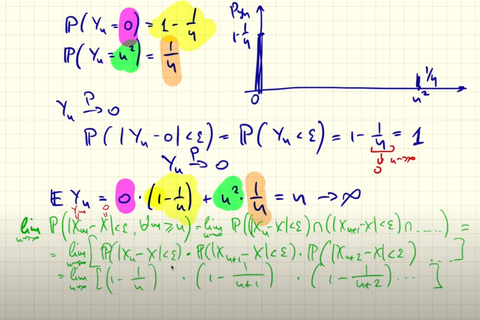 P(Yₙ=0)=1-1/n
P(Yₙ=n²)=1/n
P_Yₙ
1-1/n
0
n²
1/n
Yₙ →ᴾ 0
P(|Yₙ-0|<ε)=P(Yₙ<ε)=1-1/n=1
Yₙ →ᴾ 0
0 n→∞
E Yₙ=0·(1-1/n)+n²·1/n=n→∞
lim n→∞ P(|Xₙ-X|<ε, ∀m≥n)=lim n→∞ P((Xₙ-X|<ε)∩(|Xₙ₊₁-X|<ε)∩.....)=
=lim n→∞[P(|Xₙ-X|<ε)·P(|Xₙ₊₁-X|<ε)·P(|Xₙ₊₂-X|<ε)....]
=lim n→∞[(1-1/n)·(1-1/(n+1))·(1-1/(n+2))...]